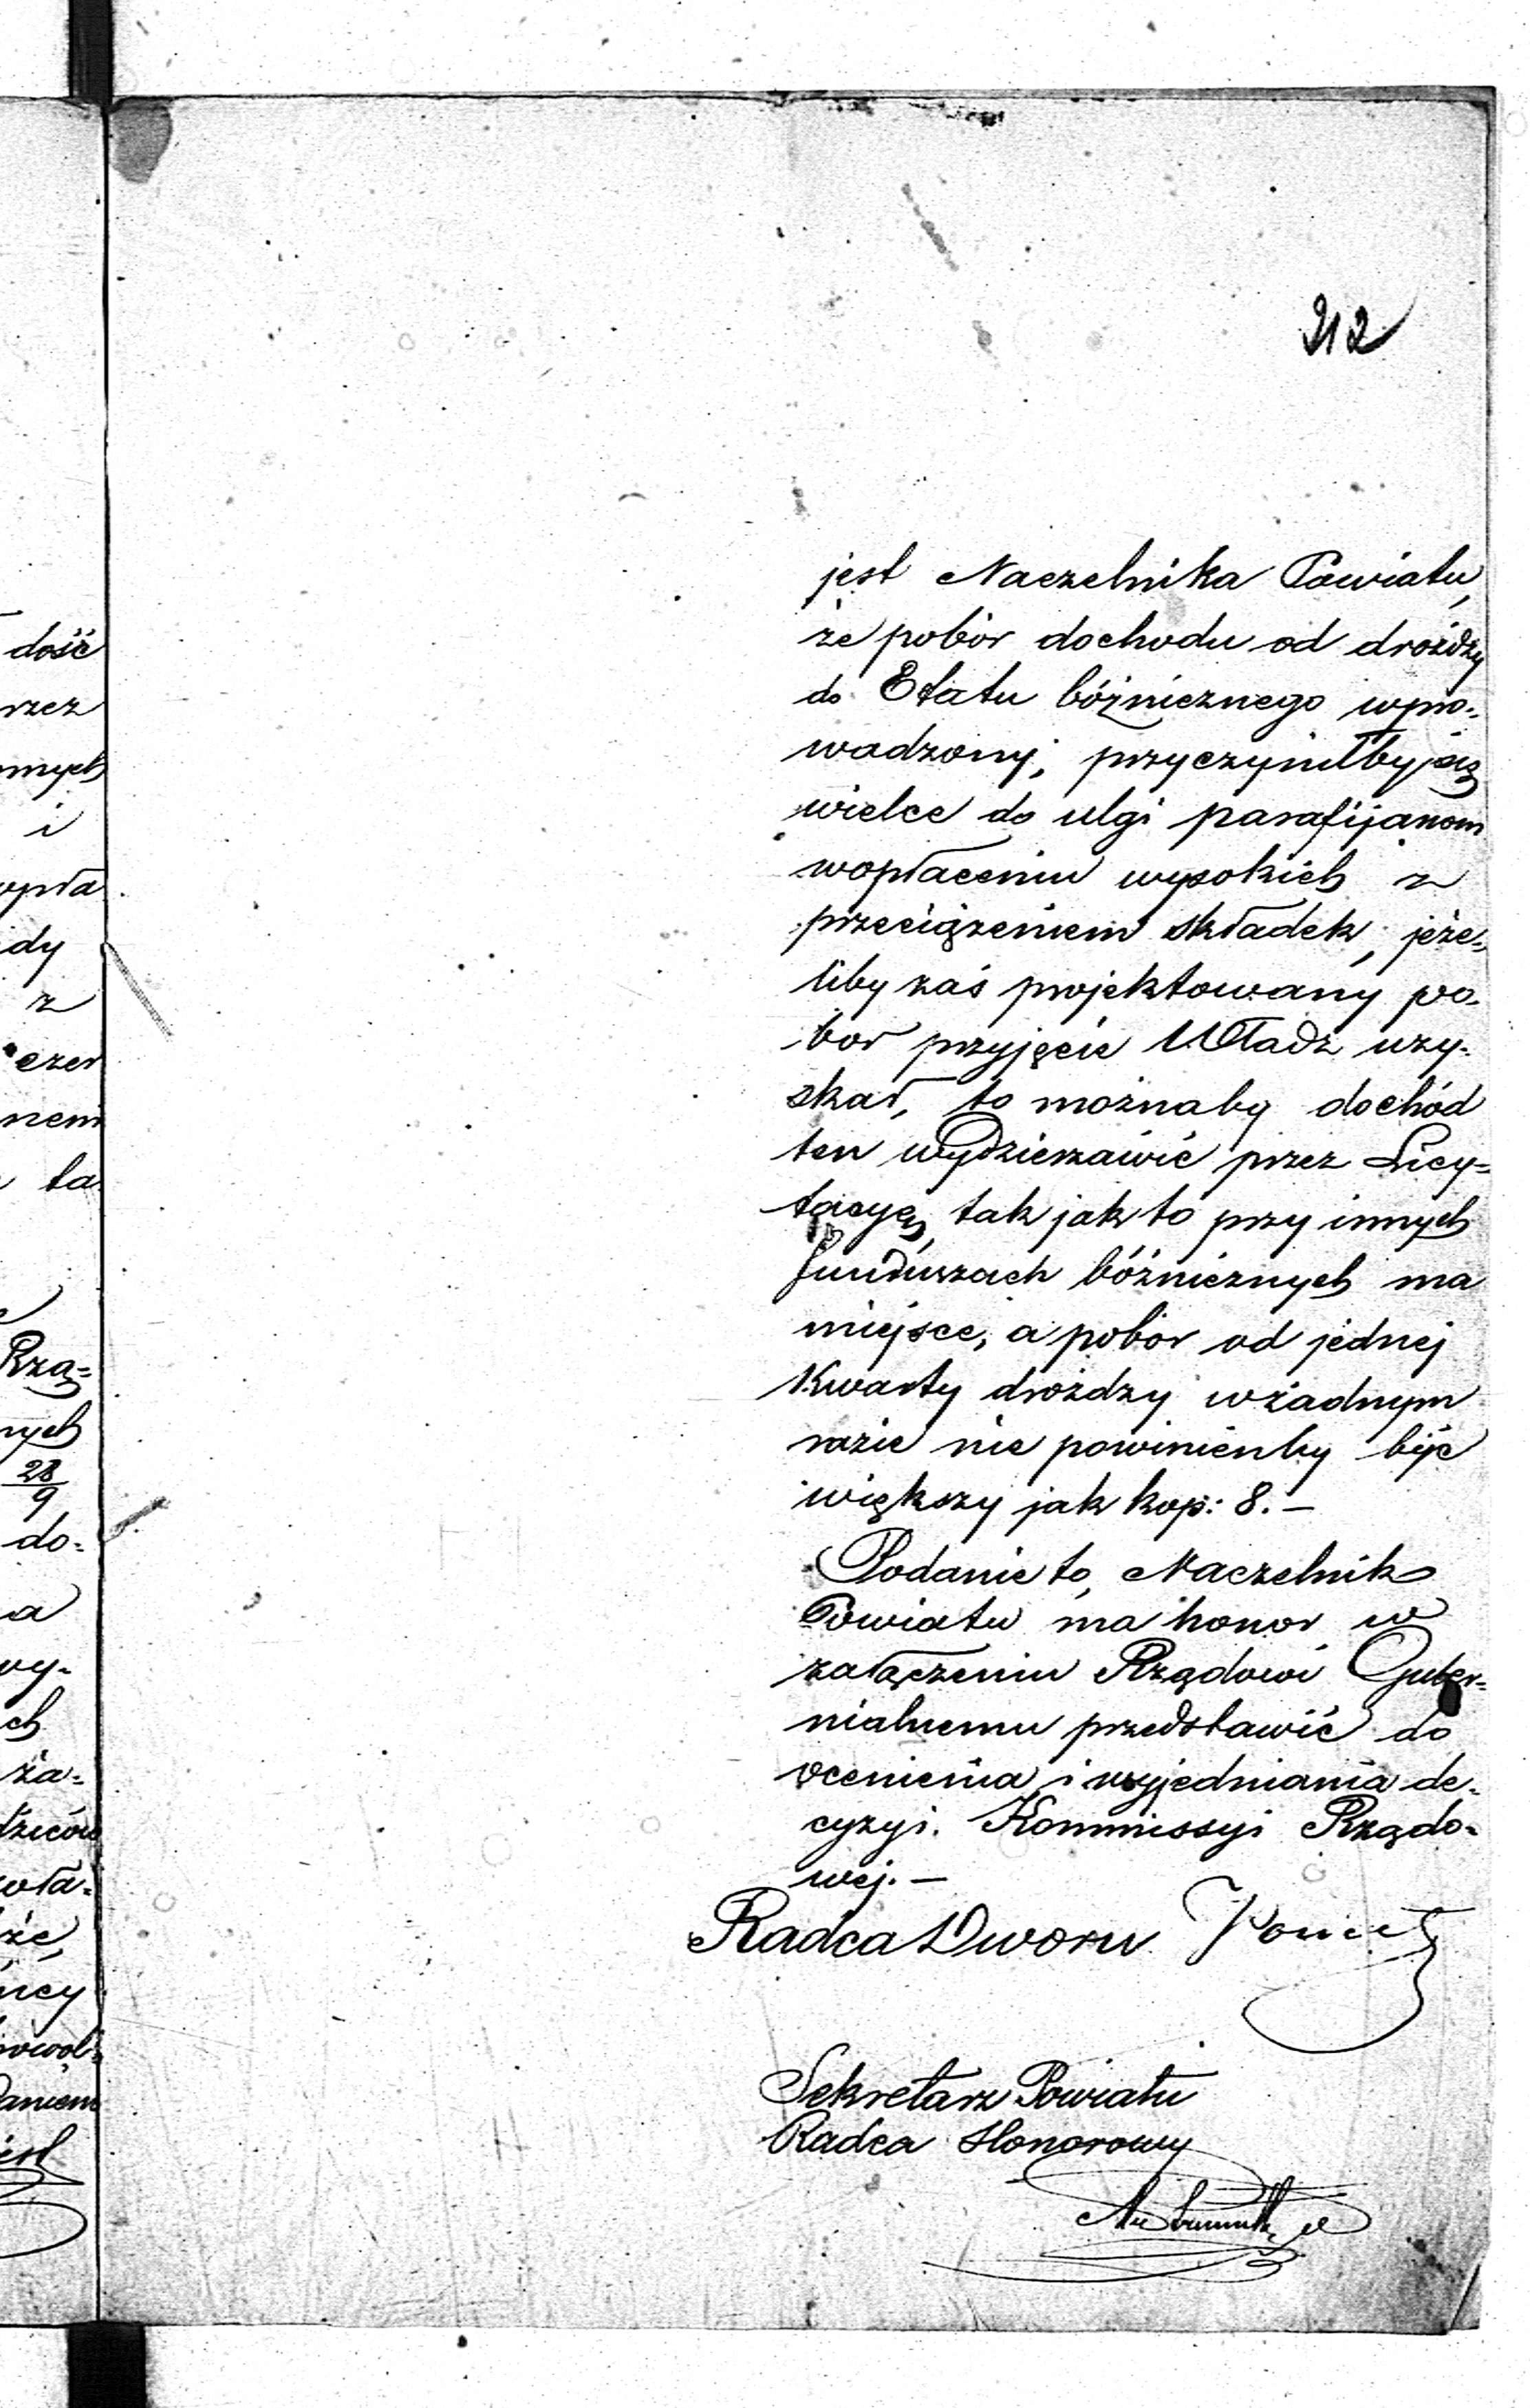 212
jest Naczelnika Powiatu,
że pobór dochodu od drożdży
do Etatu bóżnicznego wpro=
wadzony, przyczyniłby się
wielce do ulgi parafijanom
wopłaceniu wysokich z
przeciążeniem składek, jeże=
liby zaś projektowany po=
bor przyjęcie Władz uzy=
skał, to możnaby dochód
ten wydzierzawić przez Licy=
tacyę, tak jak to przy innych
funduszach bóżnicznych ma
miejsce, a pobór od jednej
Kwarty drożdzy wżadnym
razie nie powinienby być
większy jak kop: 8. —
Podanie to, Naczelnik
Powiatu ma honor w
załączeniu Rządowi Guber=
nialnemu przedstawić do
ocenienia i wyjednania de=
cyzyi. Kommissyi Rządo=
wej. —
Radca Dworu
Sekretarz Powiatu
Radca Honorowy
dość
rzez
nnych
i
opła
dy
z
czer
nem
ta
Rzą=
nych
28/9
do=
a
wy=
ch
ża=
dziców
że